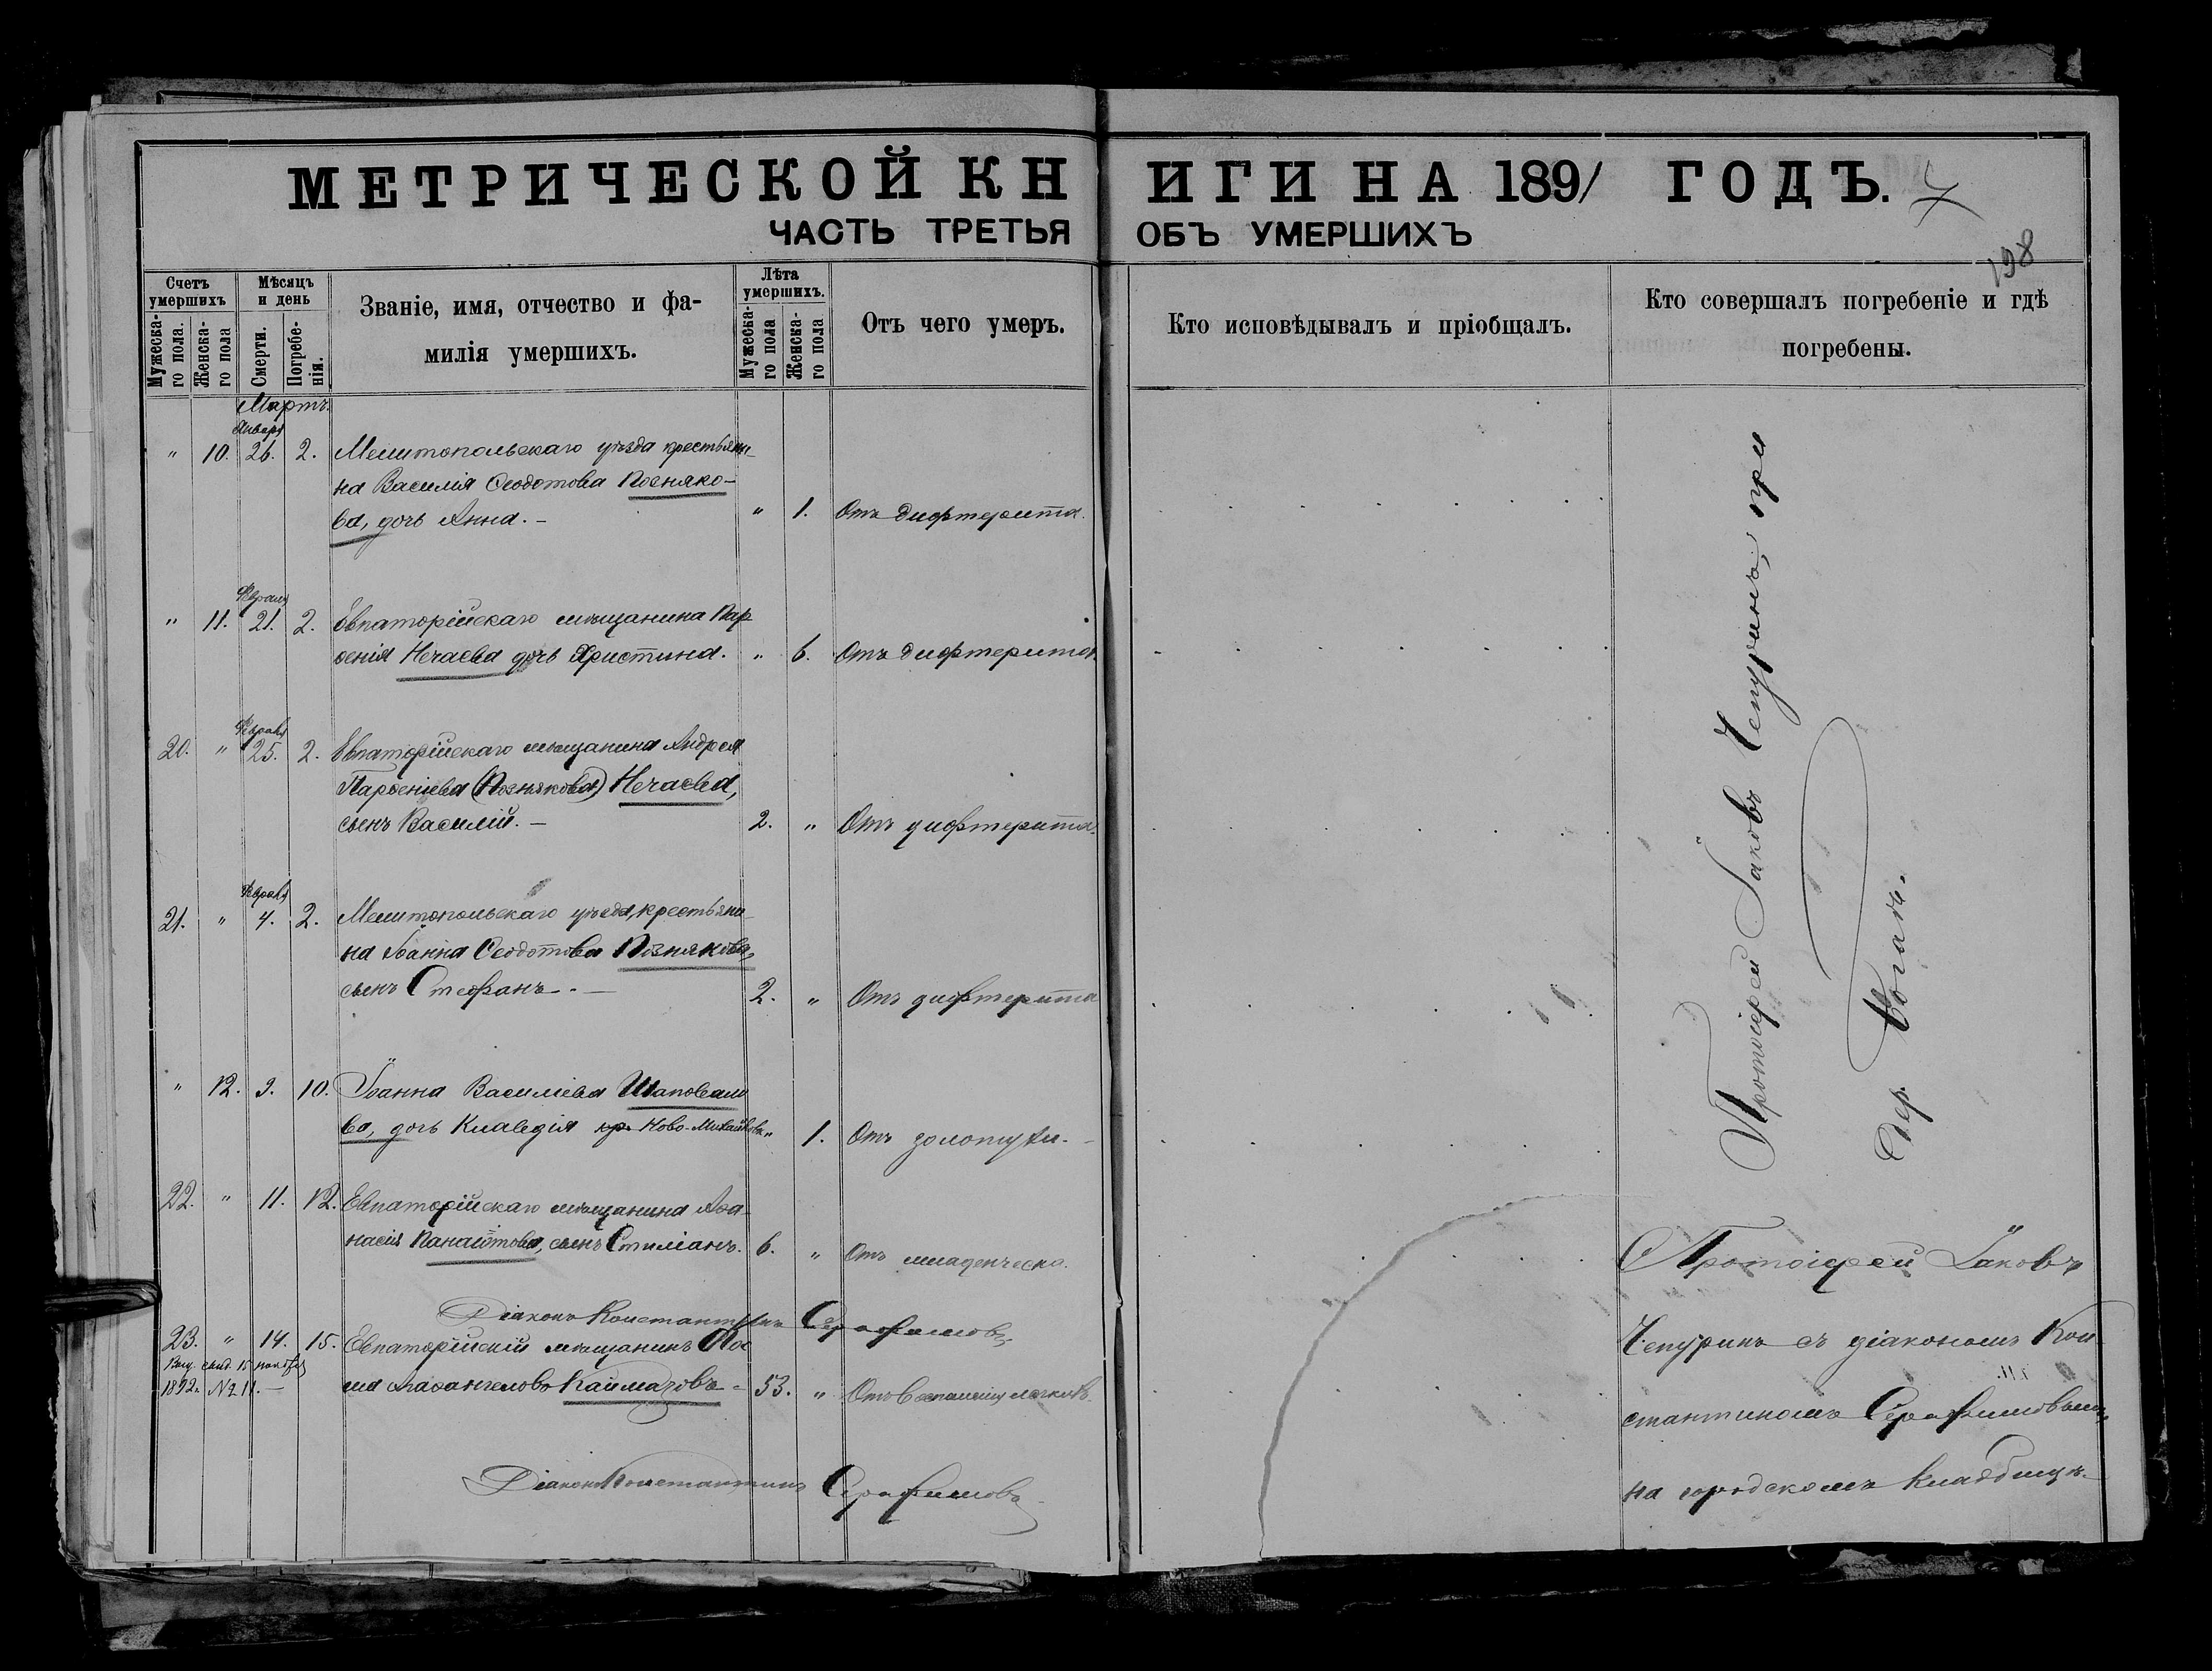 МЕТРИЧЕСКОЙ КНИГИ НА 1891 ГОДЪ.
ЧАСТЬ ТРЕТЬЯ ОБЪ УМЕРШИХЪ
198
Счетъ умершихъ
Мужеска-го пола.
Женска-го пола
Мѣсяцъ и день
Смерти.
Погребе-нія.
Званіе, имя, отчество и фа-
милія умершихъ.
Лѣта умершихъ.
Мужеска-го пола
Женска-го пола
Отъ чего умеръ.
Кто исповѣдывалъ и пріобщалъ.
Кто совершалъ погребеніе и гдѣ
погребены.
Мартъ.
Января
" 10. 26. 2. Мелитопольскаго уѣзда крестьяни-
на Василія Ѳеодотова Посняко-
ва, дочь Анна. — " 1. Отъ дифтерита.
Февраля
" 11. 21. 2. Евпаторійскаго мѣщанина Пар
ѳенія Нечаева дочь Христина. " 6. Отъ дифтерита.
Февраля
20. " 25. 2. Евпаторійскаго мѣщанина Андрея
Парѳеніева (Познякова) Нечаева,
сынъ Василій. — 2. " Отъ дифтерита.
Февраля
21. " 4. 2. Мелитопольскаго уѣзда, крестьяни-
на Іоанна Ѳеодотова Познякова,
сынъ Стефанъ. — 2. " Отъ дифтерита
" 12. 9. 10. Іоанна Василіева Шаповало
ва, дочь Клавдія кр. Ново-Михайловк. " 1. Отъ золотухи. -
22. " 11. 12. Евпаторійскаго мѣщанина Аѳа-
насія Панаіотова, сынъ Стиліанъ. 6. " Отъ младенческа.
Діаконъ Константинъ Серафимовъ
23. " 14. 15. Евпаторійскій мѣщанинъ
Выд. свид. 15 ноября
1892. № 211. —
Каймазовъ - 53. " Отъ воспаленія легкихъ.
Діаконъ Константинъ Серафимовъ
Протоіерей Іаковъ Чепуринъ, при
дер. Богаѣ.
Протоіерей Іаковъ
Чепуринъ съ діакономъ Кон
стантиномъ Серафимовымъ,
на городскомъ кладбищѣ.